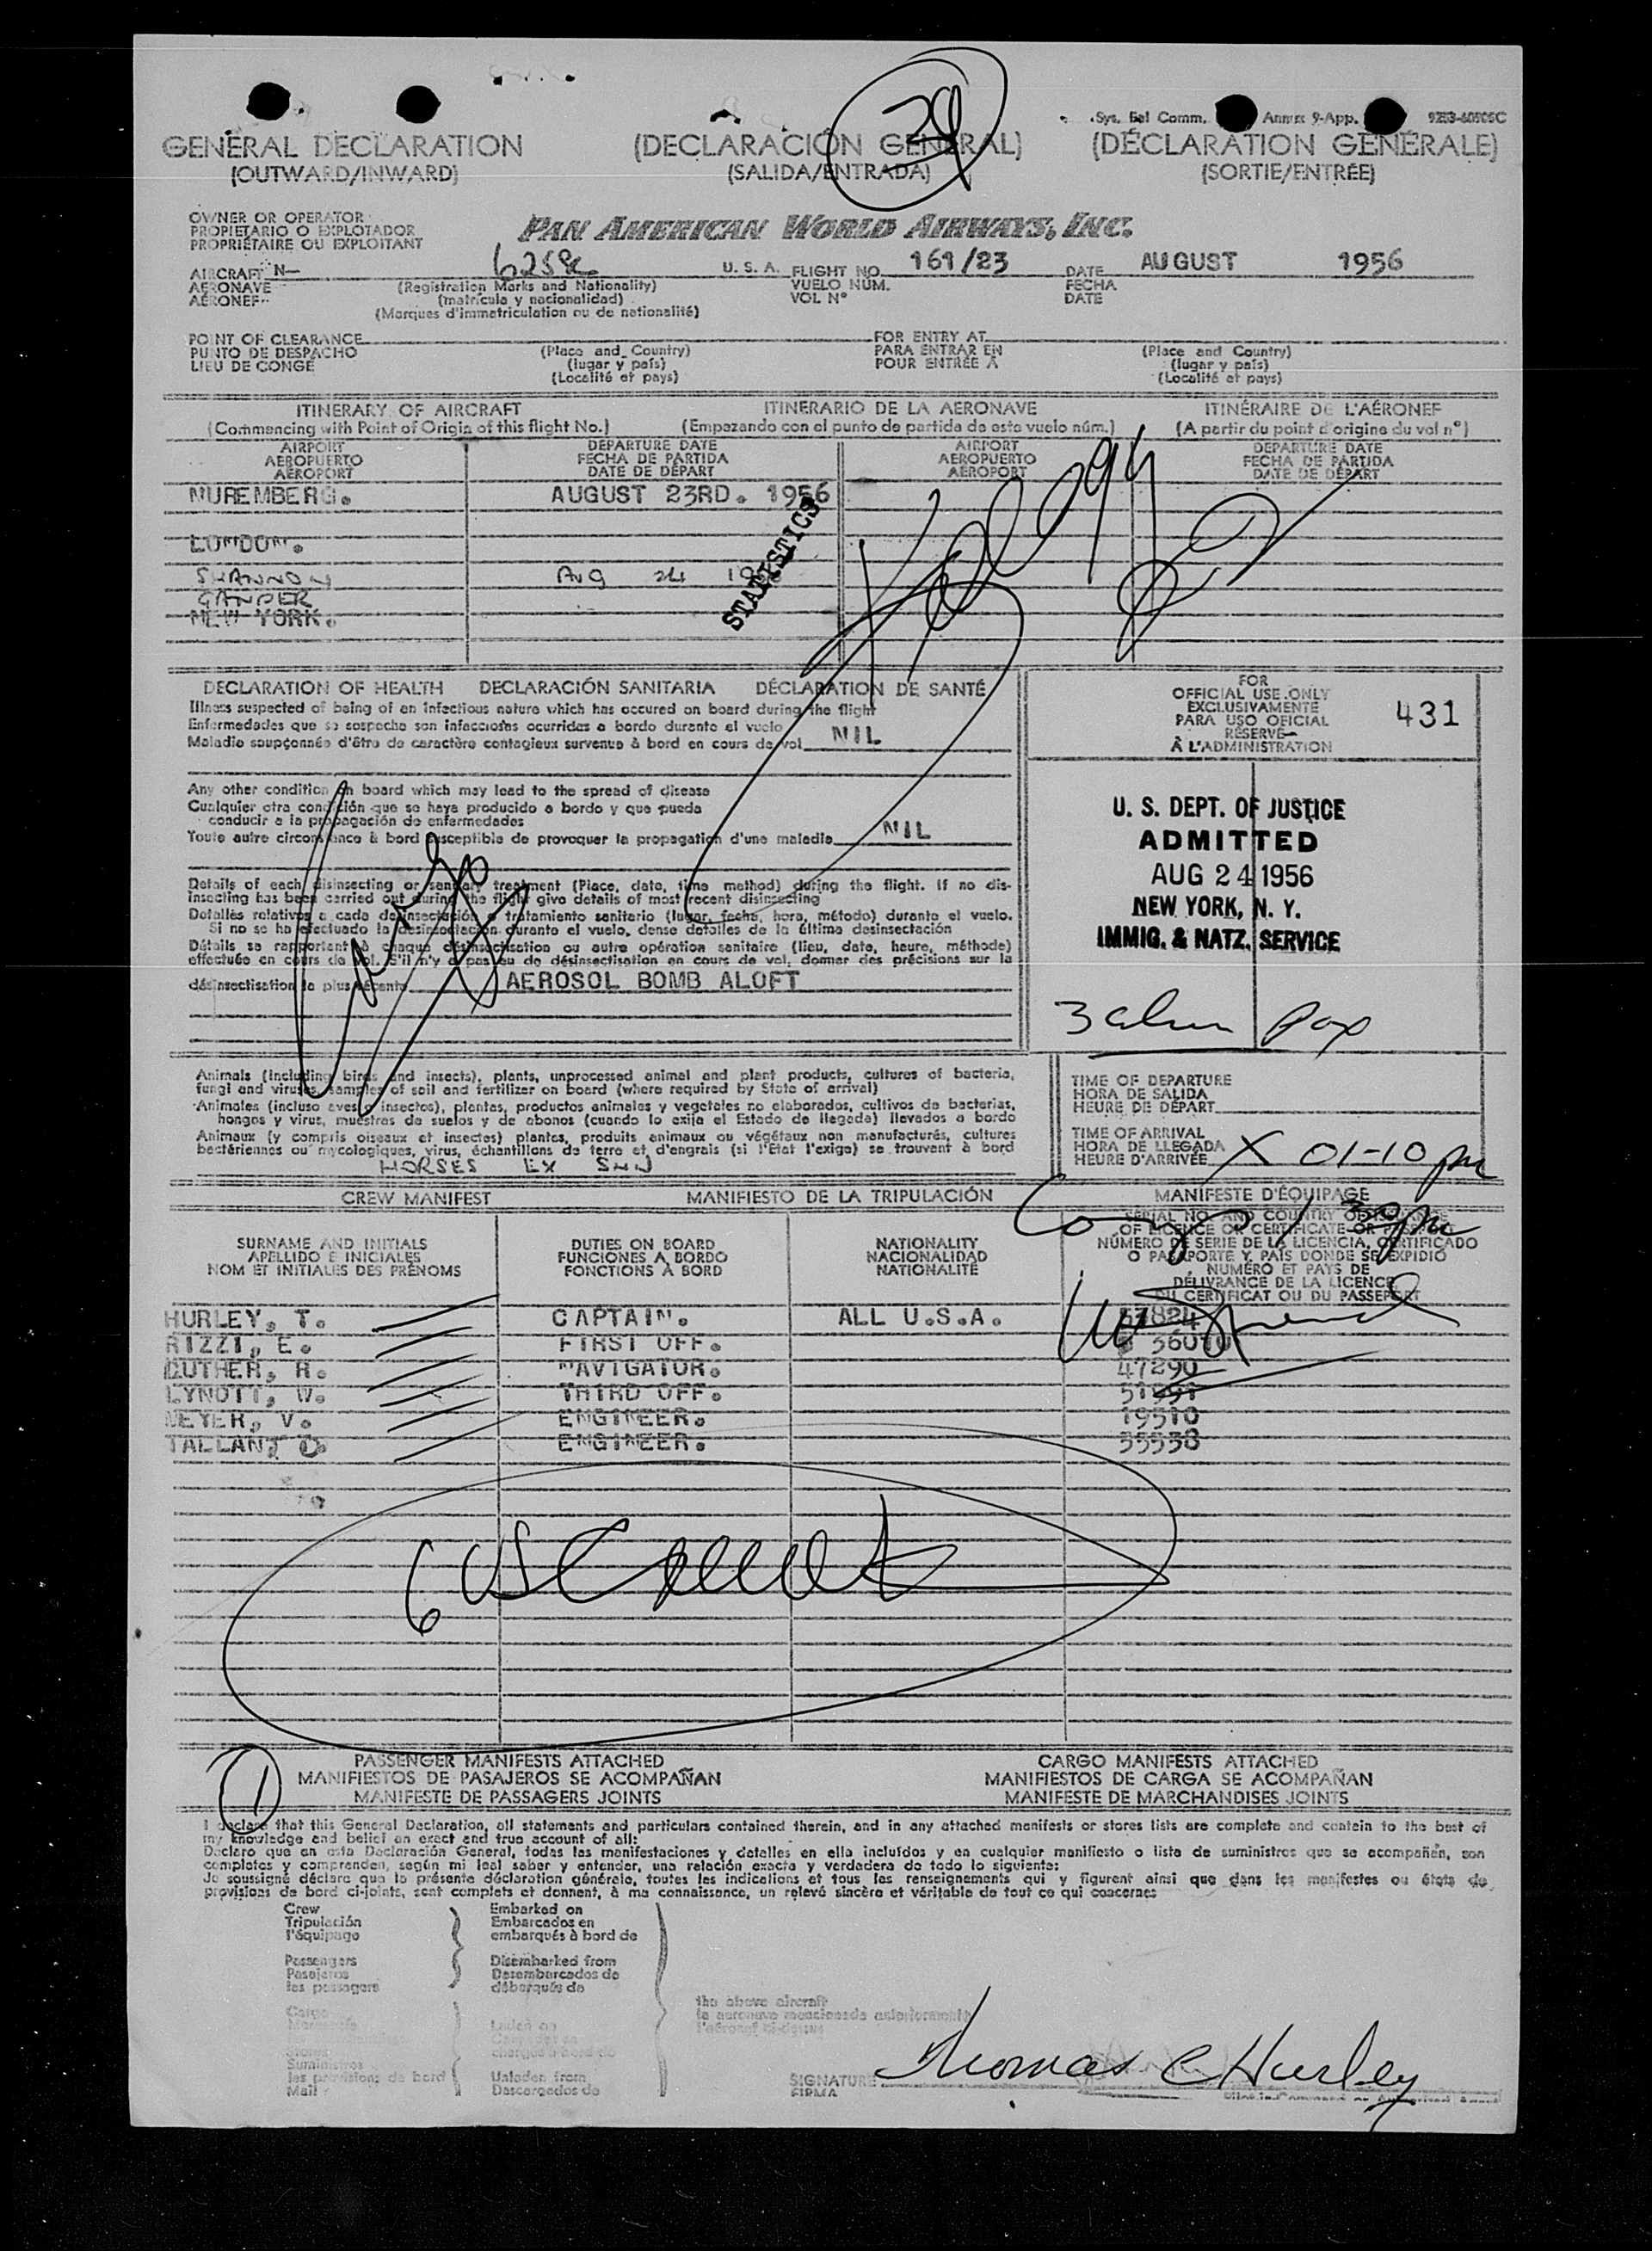 29
Annex 9-App.
GENERAL DECLARATION (DECLARACIÓN GENERAL) (DÉCLARATION GÉNÉRALE)
(OUTWARD/INWARD) (SALIDA/ENTRADA) (SORTIE/ENTRÉE)
OWNER OR OPERATOR
PROPIETARIO O EXPLOTADOR
PROPRIÉTAIRE OU EXPLOITANT
PAN AMERICAN WORLD AIRWAYS, INC.
AIRCRAFT N— U. S. A. FLIGHT NO. 161/23 DATE AUGUST 1956
AERONAVE (Registration Marks and Nationality) VUELO NÚM. FECHA
AÉRONEF (matrícula y nacionalidad) VOL N° DATE
(Marques d'immatriculation ou de nationalité)
POINT OF CLEARANCE FOR ENTRY AT
PUNTO DE DESPACHO (Place and Country) PARA ENTRAR EN (Place and Country)
LIEU DE CONGÉ (lugar y país) POUR ENTRÉE A (lugar y país)
(Localité et pays) (Localité et pays)
ITINERARY OF AIRCRAFT ITINERARIO DE LA AERONAVE ITINÉRAIRE DE L'AÉRONEF
(Commencing with Point of Origin of this flight No.) (Empezando con el punto de partida de este vuelo núm.) (A partir du point d'origine du vol n°)
AIRPORT DEPARTURE DATE AIRPORT DEPARTURE DATE
AEROPUERTO FECHA DE PARTIDA AEROPUERTO FECHA DE PARTIDA
AÉROPORT DATE DE DÉPART AÉROPORT DATE DE DÉPART
NUREMBERG. AUGUST 23RD. 1956
LONDON.
SHANNON Aug 24
GANDER
NEW YORK.
STATISTICS
DECLARATION OF HEALTH DECLARACIÓN SANITARIA DÉCLARATION DE SANTÉ
Illness suspected of being of an infectious nature which has occured on board during the flight
Enfermedades que se sospecha son infecciosas ocurridas a bordo durante el vuelo
Maladie soupçonnée d'être de caractère contagieux survenue à bord en cours de vol NIL
Any other condition on board which may lead to the spread of disease
Cualquier otra condición que se haya producido a bordo y que pueda
conducir a la propagación de enfermedades
Toute autre circonstance à bord susceptible de provoquer la propagation d'une maladie NIL
Details of each disinsecting or sanitary treatment (Place, date, time method) during the flight. If no dis-
insecting has been carried out during the flight give details of most recent disinsecting
Detalles relativos a cada desinsectación o tratamiento sanitario (lugar, fecha, hora, método) durante el vuelo.
Si no se ha efectuado la desinsectación durante el vuelo, dense detalles de la última desinsectación
Détails se rapportant à chaque désinsectisation ou autre opération sanitaire (lieu, date, heure, méthode)
effectuée en cours de vol. S'il n'y a pas eu de désinsectisation en cours de vol, donner des précisions sur la
désinsectisation la plus récente AEROSOL BOMB ALOFT
FOR
OFFICIAL USE ONLY
EXCLUSIVAMENTE
PARA USO OFICIAL
RÉSERVÉ
À L'ADMINISTRATION
431
U. S. DEPT. OF JUSTICE
ADMITTED
AUG 24 1956
NEW YORK, N. Y.
IMMIG. & NATZ. SERVICE
Animals (including birds and insects), plants, unprocessed animal and plant products, cultures of bacteria,
fungi and viruses, samples of soil and fertilizer on board (where required by State of arrival)
Animales (incluso aves o insectos), plantas, productos animales y vegetales no elaborados, cultivos de bacterias,
hongos y virus, muestras de suelos y de abonos (cuando lo exija el Estado de llegada) llevados a bordo
Animaux (y compris oiseaux et insectes) plantes, produits animaux ou végétaux non manufacturés, cultures
bactériennes ou mycologiques, virus, échantillons de terre et d'engrais (si l'Etat l'exige) se trouvant à bord
HORSES EX SNN
TIME OF DEPARTURE
HORA DE SALIDA
HEURE DE DÉPART
TIME OF ARRIVAL
HORA DE LLEGADA
HEURE D'ARRIVÉE X 01-10 pm
CREW MANIFEST MANIFIESTO DE LA TRIPULACIÓN MANIFESTE D'ÉQUIPAGE
SURNAME AND INITIALS DUTIES ON BOARD NATIONALITY
APELLIDO E INICIALES FUNCIONES A BORDO NACIONALIDAD
NOM ET INITIALES DES PRÉNOMS FONCTIONS À BORD NATIONALITÉ
NÚMERO DE SERIE DE LA LICENCIA, CERTIFICADO
O PASAPORTE Y PAÍS DONDE SE EXPIDIÓ
NUMÉRO ET PAYS DE
DÉLIVRANCE DE LA LICENCE
DU CERTIFICAT OU DU PASSEPORT
HURLEY, T. CAPTAIN. ALL U.S.A. 57824
RIZZI, E. FIRST OFF.
GUTHER, H. NAVIGATOR. 47290
LYNOTT, W. THIRD OFF.
MEYER, V. ENGINEER. 19510
TALLANT ENGINEER. 55538
1
PASSENGER MANIFESTS ATTACHED CARGO MANIFESTS ATTACHED
MANIFIESTOS DE PASAJEROS SE ACOMPAÑAN MANIFIESTOS DE CARGA SE ACOMPAÑAN
MANIFESTE DE PASSAGERS JOINTS MANIFESTE DE MARCHANDISES JOINTS
I declare that this General Declaration, all statements and particulars contained therein, and in any attached manifests or stores lists are complete and contain to the best of
my knowledge and belief an exact and true account of all:
Declaro que en esta Declaración General, todas las manifestaciones y detalles en ella incluídos y en cualquier manifiesto o lista de suministros que se acompañen, son
completos y comprenden, según mi leal saber y entender, una relación exacta y verdadera de todo lo siguiente:
Je soussigné déclare que la présente déclaration générale, toutes les indications et tous les renseignements qui y figurent ainsi que dans les manifestes ou états de
provisions de bord ci-joints, sont complets et donnent, à ma connaissance, un relevé sincère et véritable de tout ce qui concerne:
Crew Embarked on
Tripulación Embarcados en
l'équipage embarqués à bord de
Passengers Disembarked from
Pasajeros Desembarcados de
les passagers débarqués de
the above aircraft
la aeronave mencionada anteriormente
l'aéronef ci-dessus
Cargo
Laden on
Suministros
les provisions de bord Unladen from
Mail Descargados de
SIGNATURE
FIRMA
Thomas C Hurley